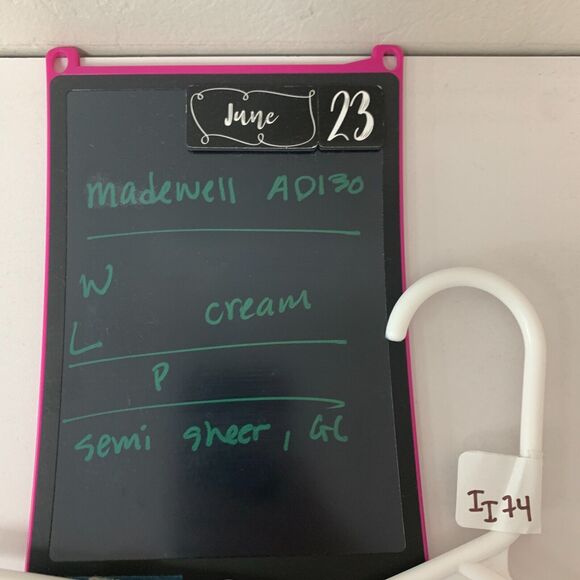 June 23
madewell AD130
W
cream
L
P
semi sheer, GC
II74